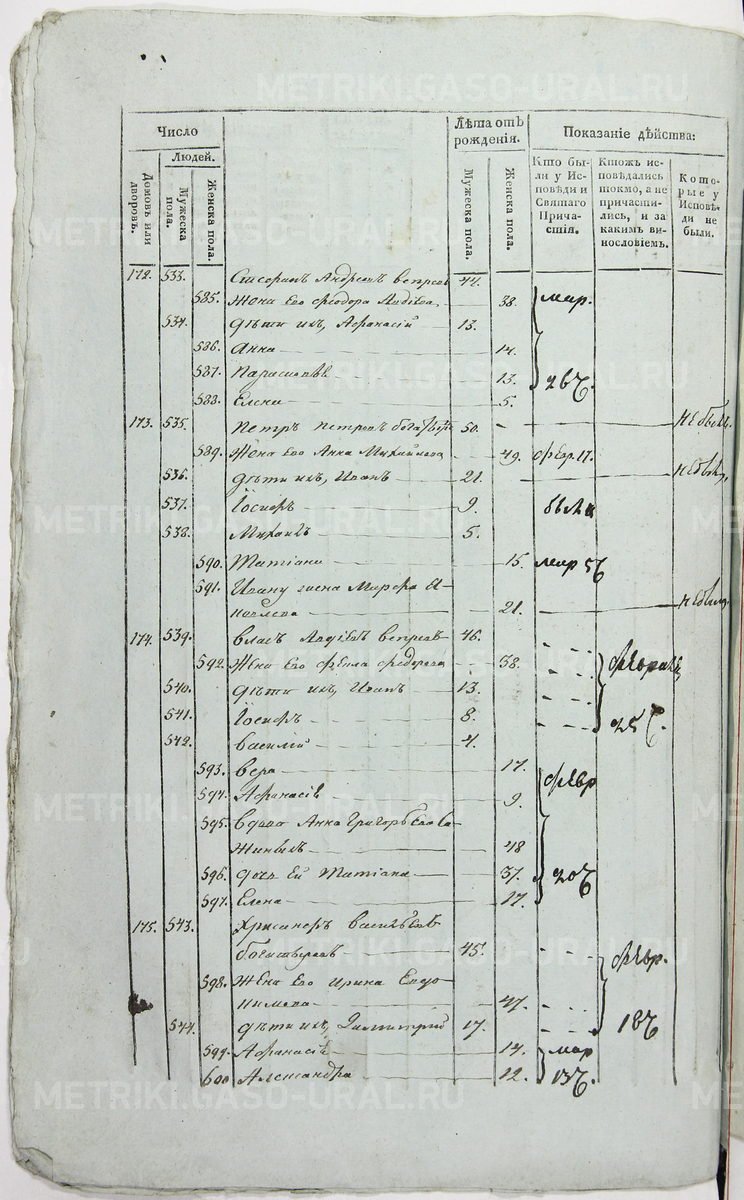 METRIKI.GASO-URAL.RU
Число
Людей.
Домовъ или дворовъ.
Мужеска пола.
Женска пола.
Лѣта отъ рожденія.
Мужеска пола.
Женска пола.
Показаніе дѣйства:
Кто бы-
ли у Ис-
повѣди и
Святаго
Прича-
стія.
Ктожъ ис-
повѣдались
токмо, а не
причасти-
лись, и за
какимъ ви-
нословіемъ.
Кото-
рые у
Исповѣ-
ди не
были.
172. 533. Андреевъ 44.
585. Жена Его Феодора Авдѣева 38. мар.
534. дѣти ихъ, Афанасій 13.
586. Анна 14.
587. 13. 26
588. Елена 5.
173. 535. Петръ Петровъ 50. не былъ.
589. Жена Его Анна Михайлова 49. февр. 11.
536. дѣти ихъ, Иванъ 21.
537. Іосифъ 9. были
538. Михаилъ 5.
590. Татіана 15. мар 5
591. Ивану жена Марфа
21.
174. 539. Власъ Авдѣевъ 46.
592. Жена Его Феодорова 38.
540. дѣти ихъ, Иванъ 13.
541. Іосифъ 8. 25
542. Василій 4.
593. Вера 17. февр
594. Афанасія 9.
595. Вдова Анна
48
596. дочь Ей Татіана 37. 20
597. Елена 17.
175. 543. Хрисанфъ Васильевъ
45. февр.
598. Жена Его Ирина
47.
544. дѣти ихъ, Димитрій 17. 18
599. Афанасія 14. мар
600 Александра 12. 13